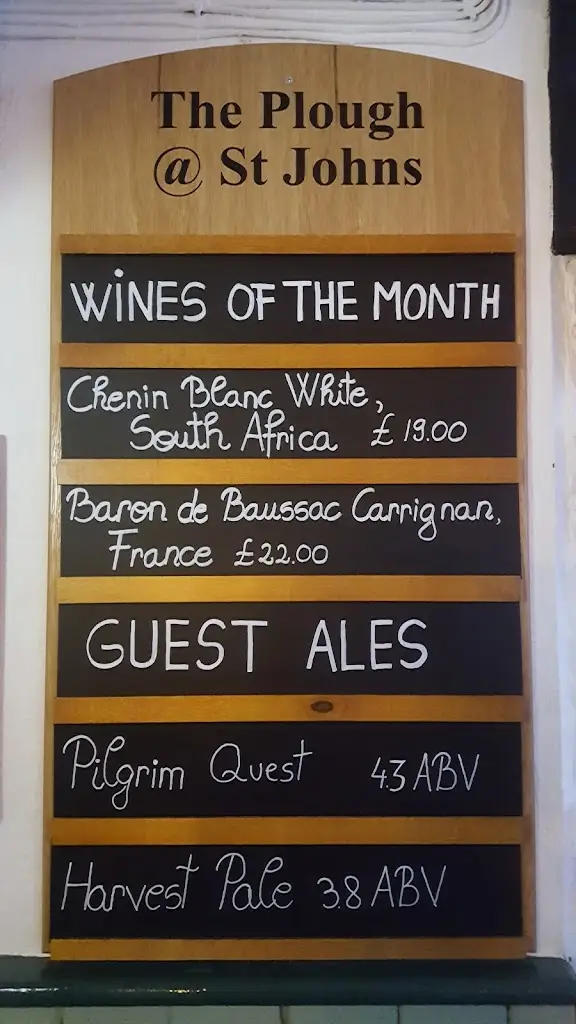 The Plough
@ St Johns
WINES OF THE MONTH
Chenin Blanc White,
South Africa £19.00
Baron de Baussac Carrignan,
France £22.00
GUEST ALES
Pilgrim Quest 4.3 ABV
Harvest Pale 3.8 ABV